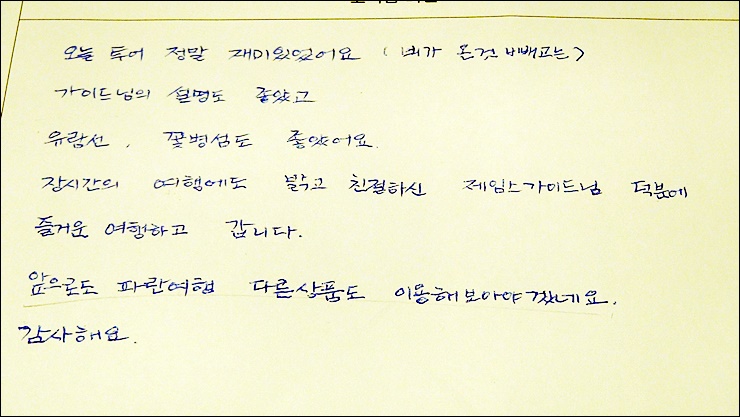 오늘 투어 정말 재미있었어요 (비가 온것 빼고는)
가이드님의 설명도 좋았고
유람선, 꽃병섬도 좋았어요.
장시간의 여행에도 밝고 친절하신 제임스가이드님 덕분에
즐거운 여행하고 갑니다.
앞으로도 파란여행 다른상품도 이용해보아야겠네요.
감사해요.